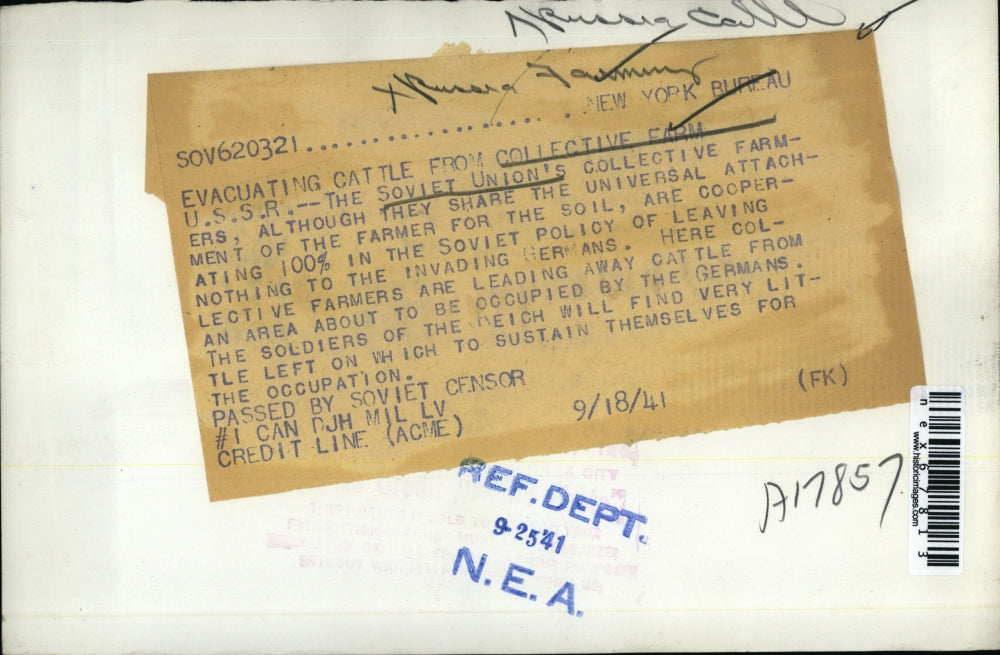 Russia Cattle
Russia Farming
SOV620321.................NEW YORK BUREAU
EVACUATING CATTLE FROM COLLECTIVE FARM
U.S.S.R.--THE SOVIET UNION'S COLLECTIVE FARM-
ERS, ALTHOUGH THEY SHARE THE UNIVERSAL ATTACH-
MENT OF THE FARMER FOR THE SOIL, ARE COOPER-
ATING 100% IN THE SOVIET POLICY OF LEAVING
NOTHING TO THE INVADING GERMANS. HERE COL-
LECTIVE FARMERS ARE LEADING AWAY CATTLE FROM
AN AREA ABOUT TO BE OCCUPIED BY THE GERMANS.
THE SOLDIERS OF THE REICH WILL FIND VERY LIT-
TLE LEFT ON WHICH TO SUSTAIN THEMSELVES FOR
THE OCCUPATION.
PASSED BY SOVIET CENSOR
#1 CAN DJH MIL LV 9/18/41 (FK)
CREDIT LINE (ACME)
REF. DEPT.
9-2541
N.E.A.
A17857
nex67813
www.historicimages.com